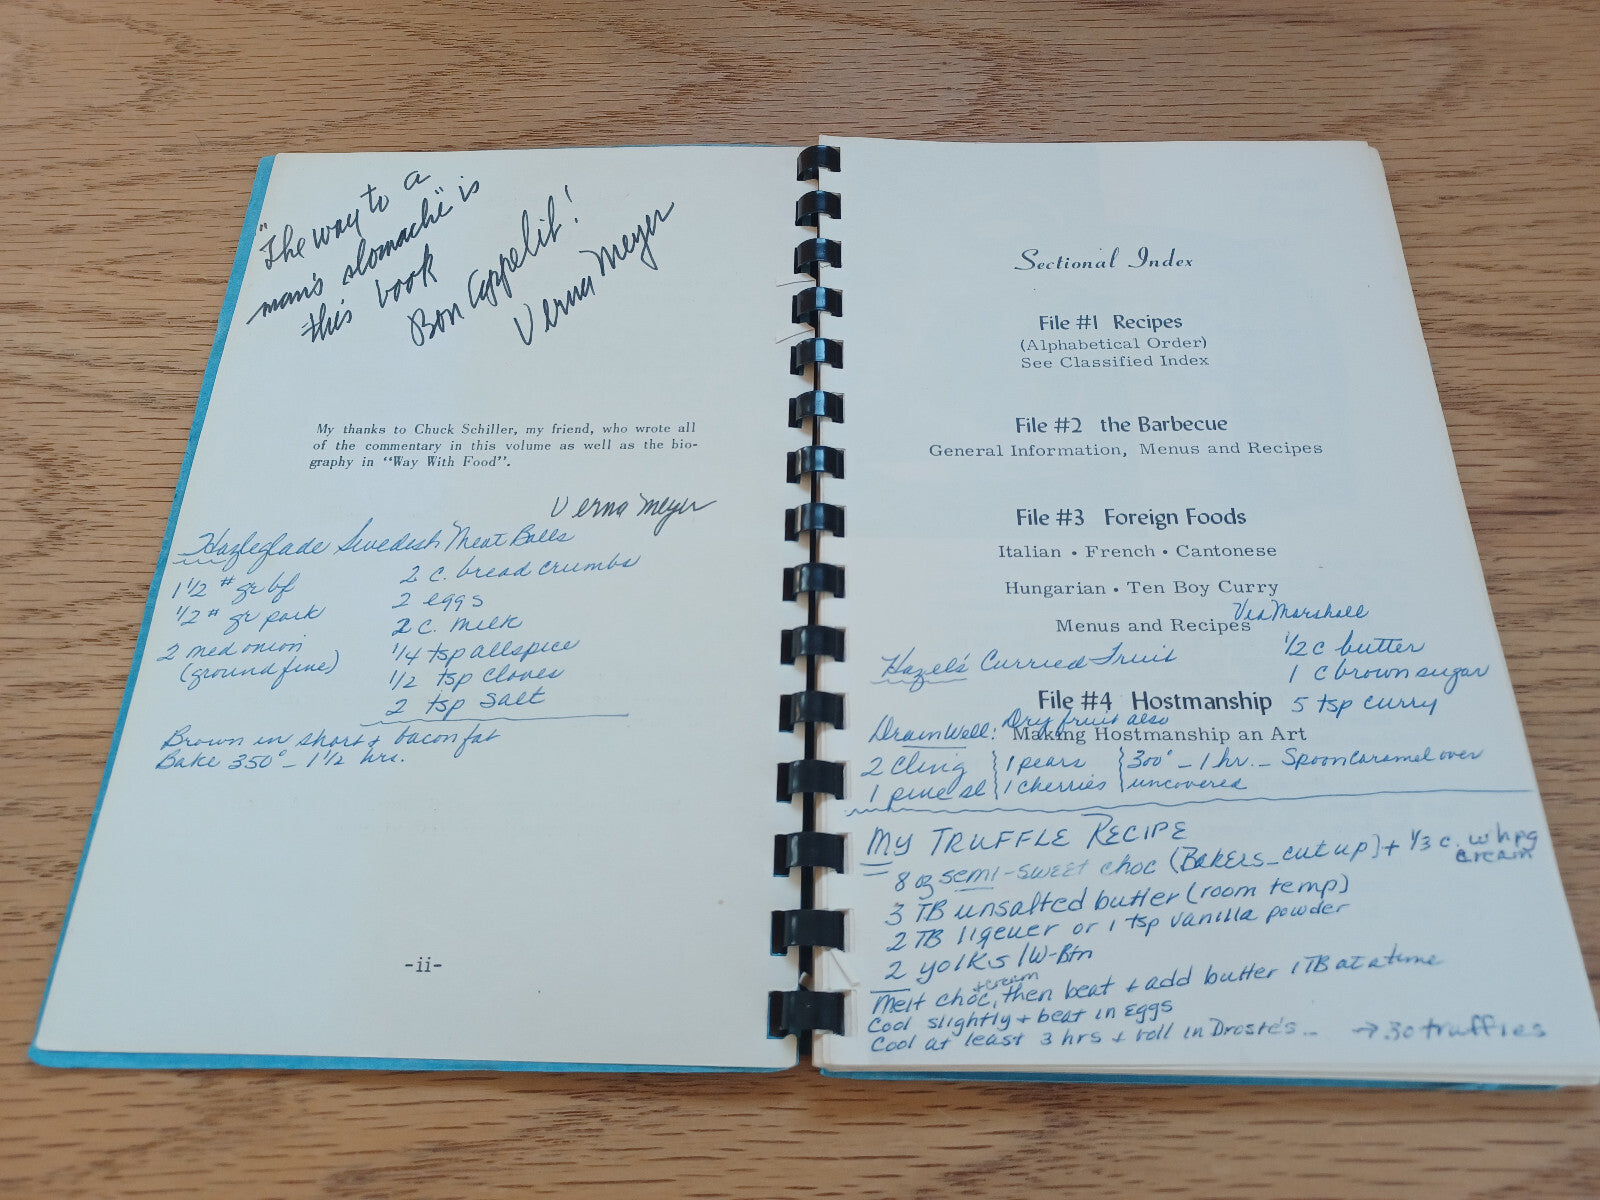 "The way to a
man's stomach" is
this book
Bon Appetit!
Verna Meyer
My thanks to Chuck Schiller, my friend, who wrote all
of the commentary in this volume as well as the bio-
graphy in "Way With Food".
Verna Meyer
Hazleglade Swedish Meat Balls
1 1/2 # gr bf
1/2 # gr pork
2 med onion
(ground fine)
2 c. bread crumbs
2 eggs
2 c. milk
1/4 tsp allspice
1/2 tsp cloves
2 tsp salt
Brown in short + bacon fat
Bake 350° - 1 1/2 hrs.
-ii-
Sectional Index
File #1 Recipes
(Alphabetical Order)
See Classified Index
File #2 the Barbecue
General Information, Menus and Recipes
File #3 Foreign Foods
Italian • French • Cantonese
Hungarian • Ten Boy Curry
Menus and Recipes
Via Marshall
Hazel's Curried Fruit
1/2 c butter
1 c brown sugar
5 tsp curry
File #4 Hostmanship
Making Hostmanship an Art
Drain Well: Dry fruit also
2 cling } 1 pears } 300° - 1 hr. - Spoon caramel over
1 pine sl } 1 cherries } uncovered
MY TRUFFLE RECIPE
8 oz semi-sweet choc (Bakers - cut up) + 1/3 c. whpg
cream
3 TB unsalted butter (room temp)
2 TB liqeuer or 1 tsp vanilla powder
2 yolks /W-Btn
Melt choc, + cream then beat + add butter 1 TB at a time
Cool slightly + beat in eggs
Cool at least 3 hrs + roll in Droste's - → 30 truffles